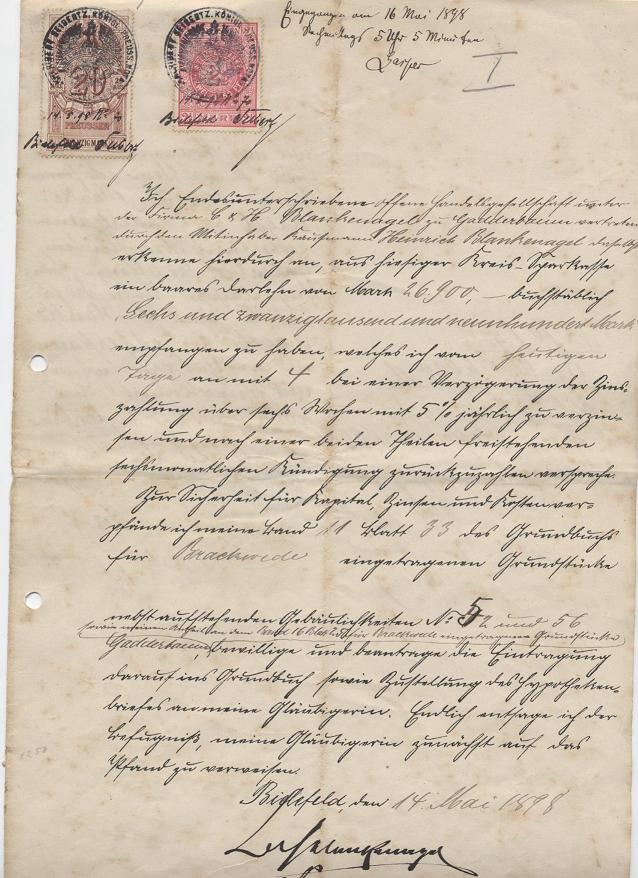 Eingegangen am 16 Mai 1898
Nachmittags 5 Uhr 5 Minuten
I
20
PREUSSEN
14.5.98
Bielefeld
Bielefeld
Ich Endesunterschriebene offene Handelsgesellschaft unter
der Firma C & H. Blankenagel zu Gadderbaum vertreten
durch den Mitinhaber Kaufmann Heinrich Blankenagel daselbst
erkenne hierdurch an, aus hiesiger Kreis-Sparkasse
ein baares Darlehn von Mark 26.900,- buchstäblich
Sechs und zwanzigtausend und neunhundert Mark
empfangen zu haben, welches ich vom heutigen
Tage an mit 4 bei einer Verzögerung der Zins-
zahlung über sechs Wochen mit 5 % jährlich zu verzin-
sen und nach einer beiden Theilen freistehenden
sechsmonatlichen Kündigung zurückzuzahlen verspreche.
Zur Sicherheit für Kapital, Zinsen und Kosten ver-
pfände ich meine Band 11 Blatt 33 des Grundbuchs
für Brackwede eingetragenen Grundstücke
nebst aufstehenden Gebäulichkeiten No. 52 und 56
sowie meinen Antheil an dem Band 16 Blatt für Brackwede eingetragenen Grundstücke
Gadderbaum, bewillige und beantrage die Eintragung
darauf ins Grundbuch sowie Zustellung des Hypotheken-
briefes an meine Gläubigerin. Endlich entsage ich der
Befugniß, meine Gläubigerin zunächst auf das
Pfand zu verweisen.
Bielefeld, den 14. Mai 1898
Blankenagel